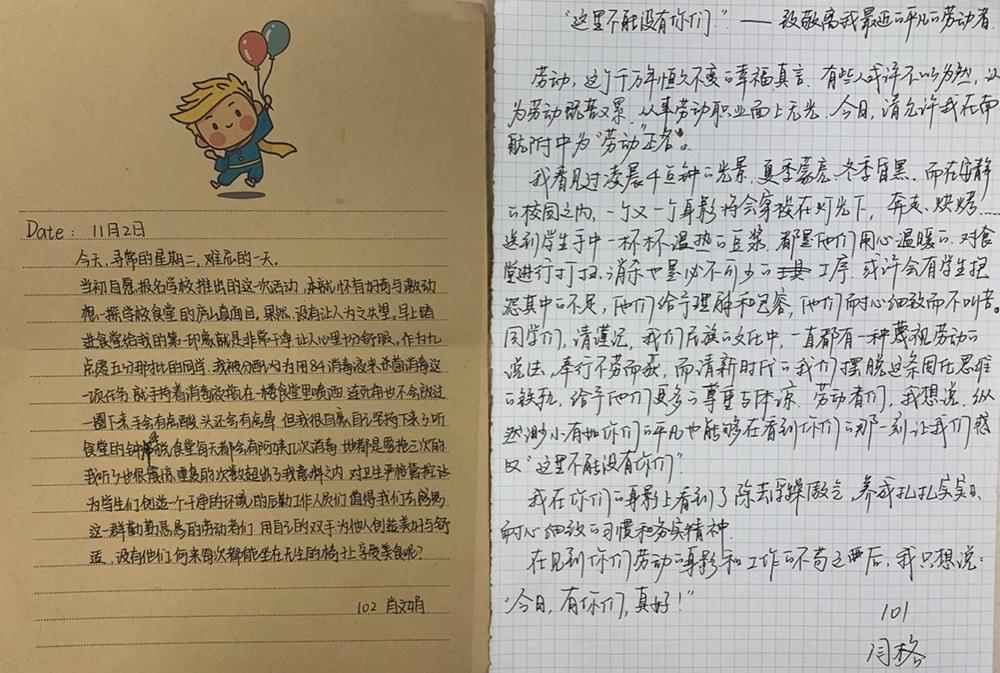 Date: 11月2日
今天,寻常的星期二,难忘的一天。
当初自愿报名学校推出的这一次活动,本就怀有好奇与激动
想一探学校食堂的庐山真面目,果然,没有让人为之失望。早上踏
进食堂给我的第一印象就是非常干净,让人心里十分舒服,作为九
点零五分那批的同学,我被分配为用84消毒液来杀菌消毒这
一项任务,就手持着消毒液瓶在一楼食堂里喷洒,连死角也不会放过
一圈下来手会有点酸,头还会有点晕,但我很自豪自己坚持下来了,听
食堂的钟师傅说食堂每天都会有阿姨几次消毒,地都是要拖三次的
我听了也很震撼,重复的次数超出了我意料之内,对卫生严格管控,让
为学生们创造一个干净的环境,的后勤工作人员们值得我们去感恩
这一群勤勤恳恳的劳动者们,用自己的双手为他人创造美好与舒
适,没有他们,何来每次都能坐在无尘的椅子上享受美食呢?
102 肖文娟
“这里不能没有你们”——致敬离我最近的平凡的劳动者
劳动,这个千万年恒久不变的幸福真言,有些人或许不以为然,认
为劳动既苦又累,从事劳动职业面上无光,今日,请允许我在南
航附中为“劳动”正名。
我看见过凌晨4点钟的光景,夏季蒙亮,冬季昏黑,而在安静
的校园之内,一个又一个身影将会穿梭在灯光下,奔走、烘烤……
送到学生手中一杯杯温热的豆浆,都是他们用心温暖的,对食
堂进行打扫、消杀也是必不可少的工序,或许会有学生抱
怨其中的不足,他们给予理解和包容,他们耐心细致而不叫苦。
同学们,请谨记,我们民族的文化中,一直都有一种蔑视劳动的
说法,奉行不劳而获,而请新时代的我们摆脱这条固化思维
的铁轨,给予他们更多的尊重与体谅,劳动者们,我想说,纵
然渺小有如你们的平凡也能够在看到你们的那一刻让我们感
叹“这里不能没有你们”
我在你们的身影上看到了除去浮躁傲气,养我扎扎实实的、
耐心细致的习惯和务实精神.
在见到你们劳动的身影和工作的不苟之后,我只想说:
“今日,有你们,真好!”
101
闫格